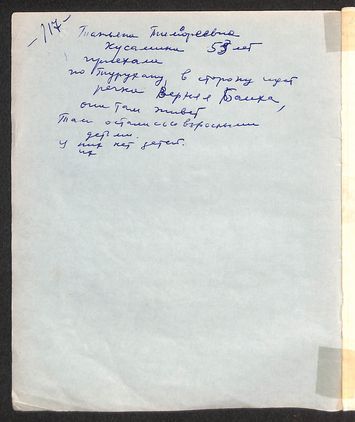 -117-
Татьяна Тимофеевна
Хусаинина 53 лет
приехала
по Турухану, в сторону идет
речка Верхняя Баиха,
они там живет
Там остались с взрослыми
детьми.
У них нет детей.
их